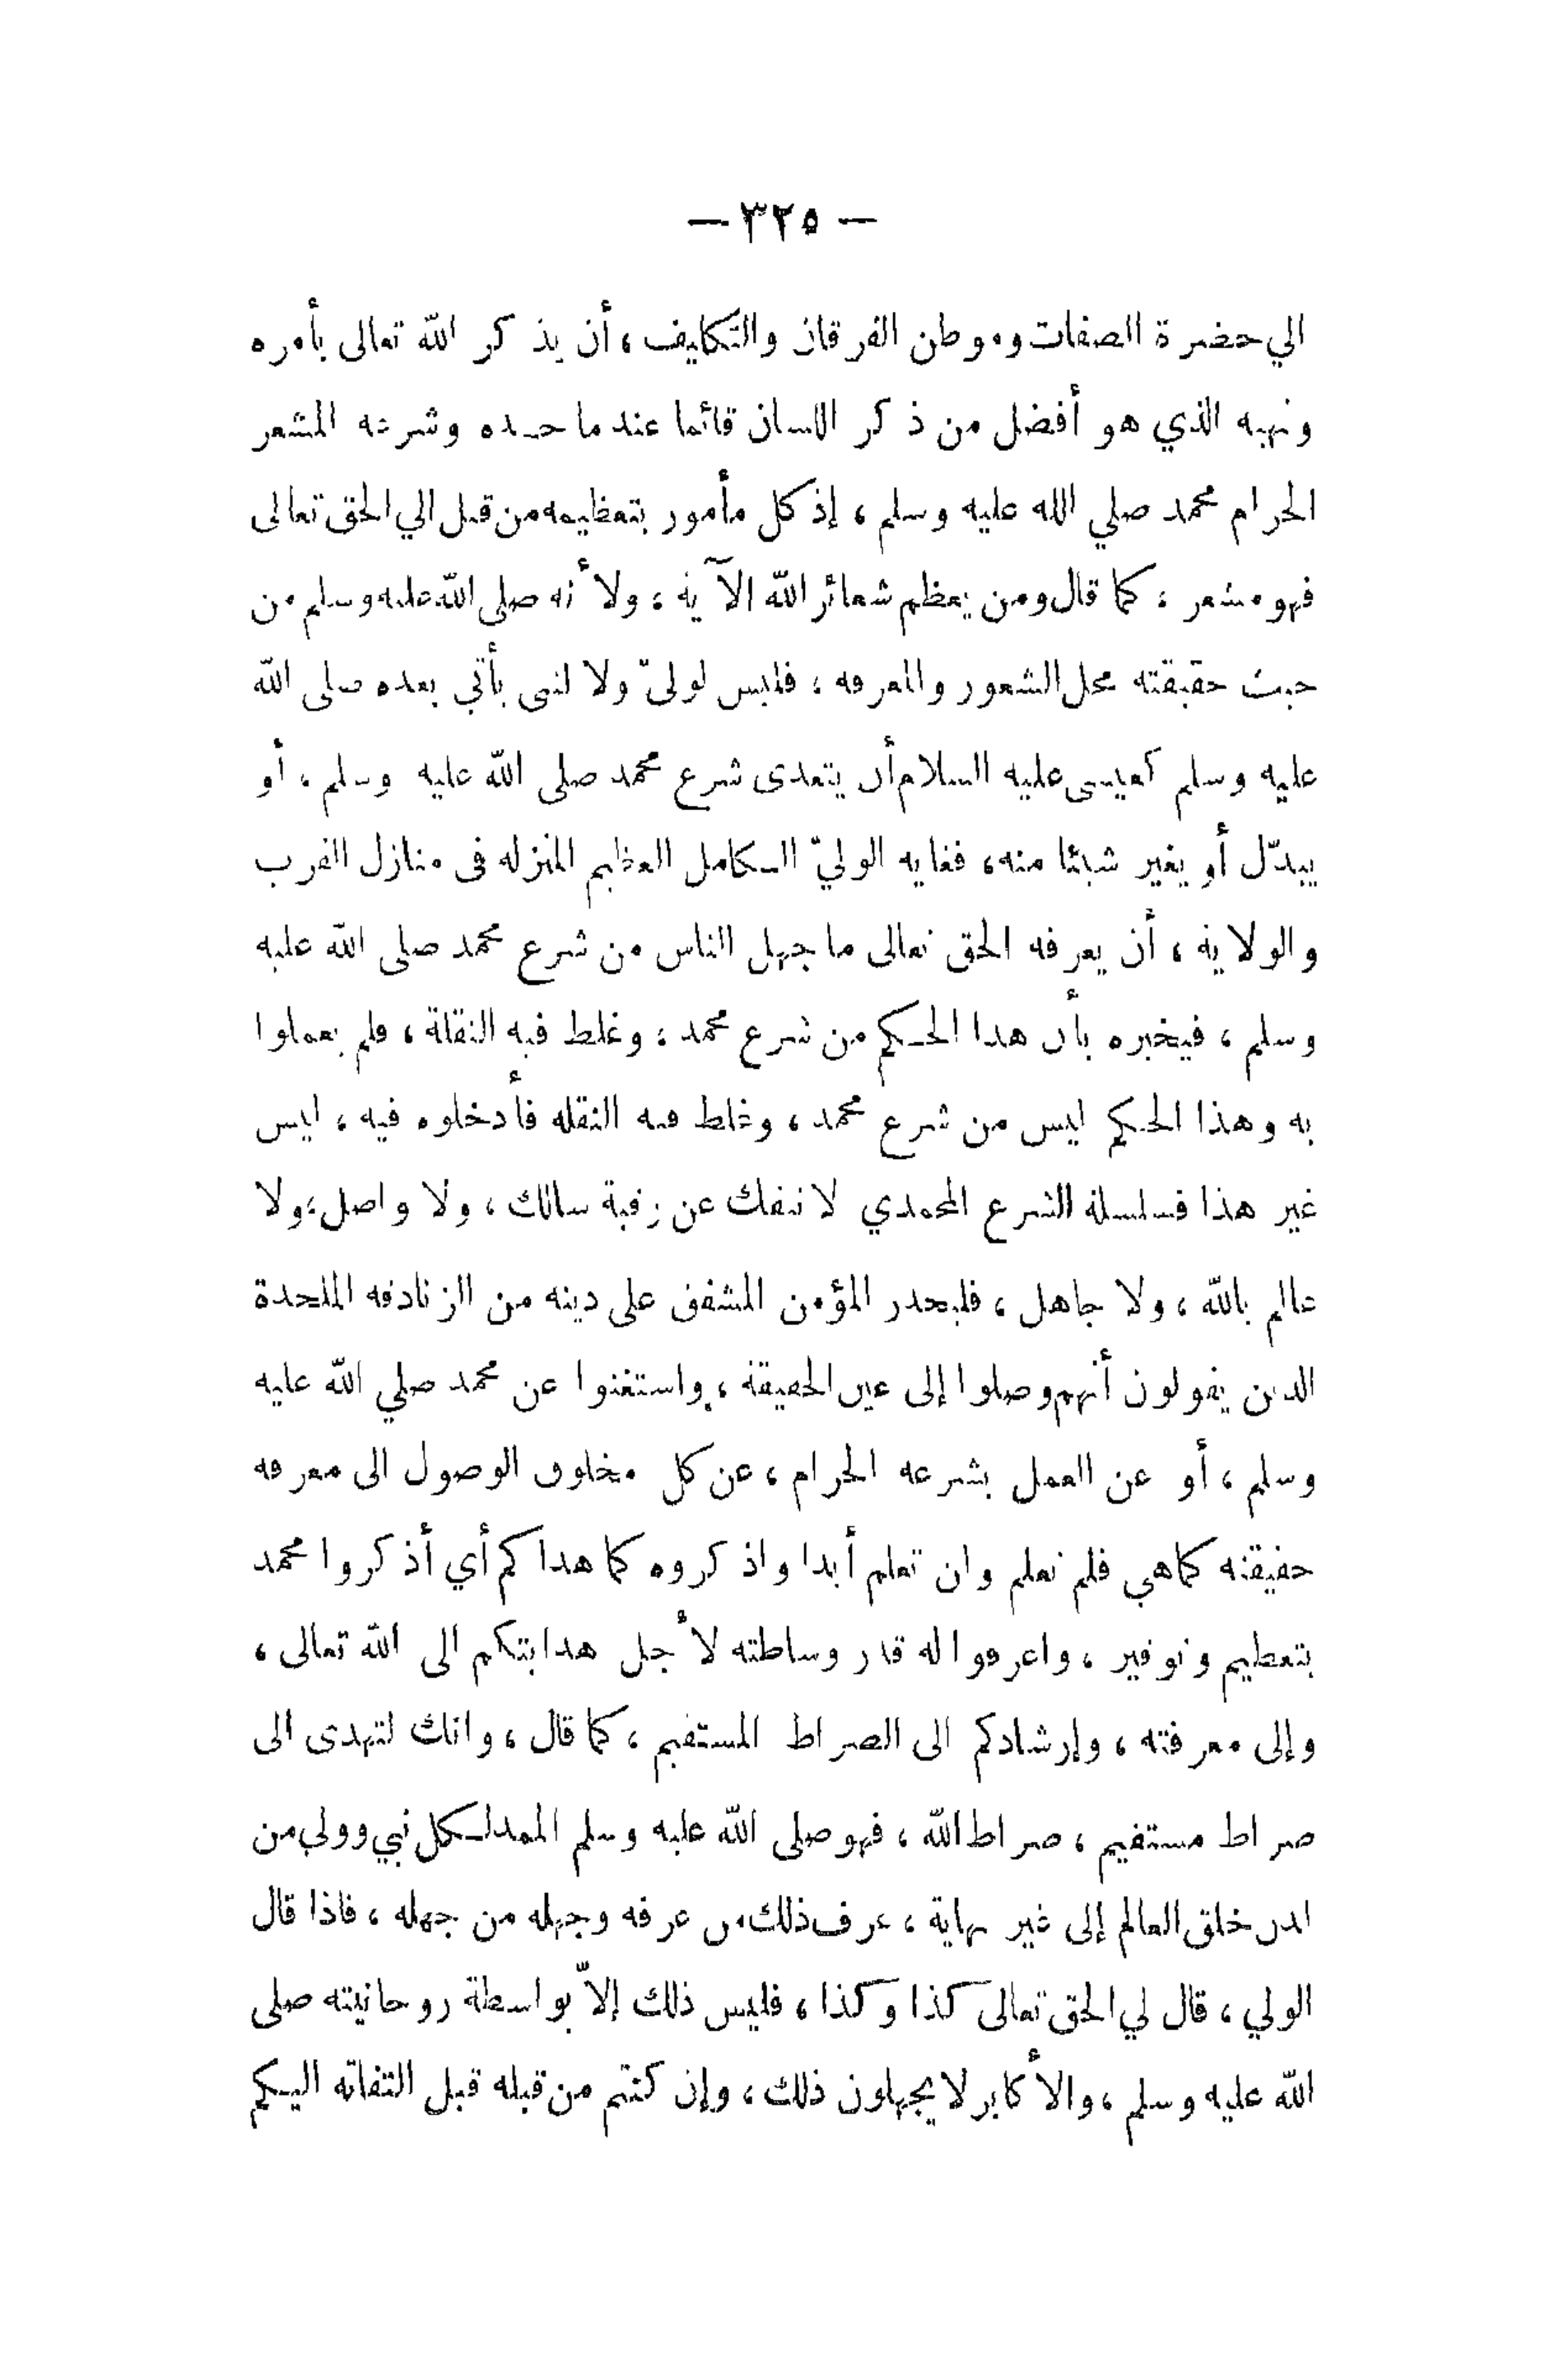 — ٣٢٥ —
الي حضرة الصفات وموطن الفرقان والتكاليف ، أن يذكر الله تعالى بأمره
ونهيه الذي هو أفضل من ذكر اللسان قائما عند ما حده وشرعه المشعر
الحرام محمد صلي الله عليه وسلم ، إذ كل مأمور بتعظيمه من قبل الي الحق تعالى
فهو مشعر ، كما قال ومن يعظم شعائر الله الآية ، ولأنه صلى الله عليه وسلم من
حيث حقيقته محل الشعور والمعرفة ، فليس لوليّ ولا لنبي يأتي بعده صلى الله
عليه وسلم كعيسى عليه السلام أن يتعدى شرع محمد صلى الله عليه وسلم ، أو
يبدّل أو يغير شيئا منه ، فغاية الوليّ الكامل العظيم المنزلة فى منازل القرب
والولاية ، أن يعرفه الحق تعالى ما جهل الناس من شرع محمد صلى الله عليه
وسلم ، فيخبره بأن هذا الحكم من شرع محمد ، وغلط فيه النقلة ، فلم يعملوا
به وهذا الحكم ليس من شرع محمد ، وغلط فيه النقلة فأدخلوه فيه ، ليس
غير هذا فسلسلة الشرع المحمدي لا تنفك عن رقبة سالك ، ولا واصل ، ولا
عالم بالله ، ولا جاهل ، فليحذر المؤمن المشفق على دينه من الزنادقة الملحدة
الذين يقولون أنهم وصلوا إلى عين الحقيقة ، واستغنوا عن محمد صلي الله عليه
وسلم ، أو عن العمل بشرعه الحرام ، عن كل مخلوق الوصول الى معرفة
حقيقته كما هي فلم تعلم ولن تعلم أبدا واذكروه كما هداكم أي أذكروا محمد
بتعظيم وتوقير ، واعرفوا له قدر وساطته لأجل هدايتكم الى الله تعالى ،
وإلى معرفته ، وإرشادكم الى الصراط المستقيم ، كما قال ، وانك لتهدى الى
صراط مستقيم ، صراط الله ، فهو صلى الله عليه وسلم الممد لكل نبي وولي من
لدن خلق العالم إلى غير نهاية ، عرف ذلك من عرفه وجهله من جهله ، فاذا قال
الولي ، قال لي الحق تعالى كذا وكذا ، فليس ذلك إلاّ بواسطة روحانيته صلى
الله عليه وسلم ، والأكابر لا يجهلون ذلك ، وإن كنتم من قبله قبل التفاته اليكم